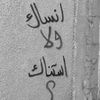 انساك
ولا
استناك
؟